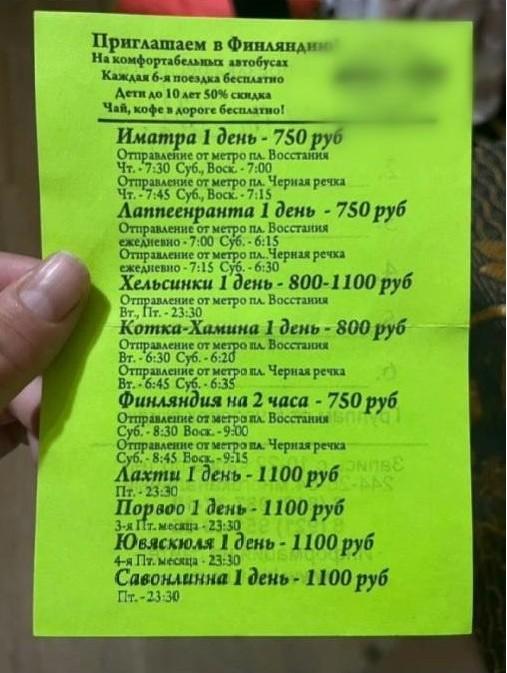 Приглашаем в Финляндию
На комфортабельных автобусах
Каждая 6-я поездка бесплатно
Дети до 10 лет 50% скидка
Чай, кофе в дороге бесплатно!
Иматра 1 день - 750 руб
Отправление от метро пл. Восстания
Чт. - 7:30 Суб., Воск. - 7:00
Отправление от метро пл. Черная речка
Чт. - 7:45 Суб., Воск. - 7:15
Лаппеенранта 1 день - 750 руб
Отправление от метро пл. Восстания
ежедневно - 7:00 Суб. - 6:15
Отправление от метро пл. Черная речка
ежедневно - 7:15 Суб. - 6:30
Хельсинки 1 день - 800-1100 руб
Отправление от метро пл. Восстания
Вт., Пт. - 23:30
Котка-Хамина 1 день - 800 руб
Отправление от метро пл. Восстания
Вт. - 6:30 Суб. - 6:20
Отправление от метро пл. Черная речка
Вт. - 6:45 Суб. - 6:35
Финляндия на 2 часа - 750 руб
Отправление от метро пл. Восстания
Суб. - 8:30 Воск. - 9:00
Отправление от метро пл. Черная речка
Суб. - 8:45 Воск. - 9:15
Лахти 1 день - 1100 руб
Пт. - 23:30
Порвоо 1 день - 1100 руб
3-я Пт. месяца - 23:30
Ювяскюля 1 день - 1100 руб
4-я Пт. месяца - 23:30
Савонлинна 1 день - 1100 руб
Пт. - 23:30